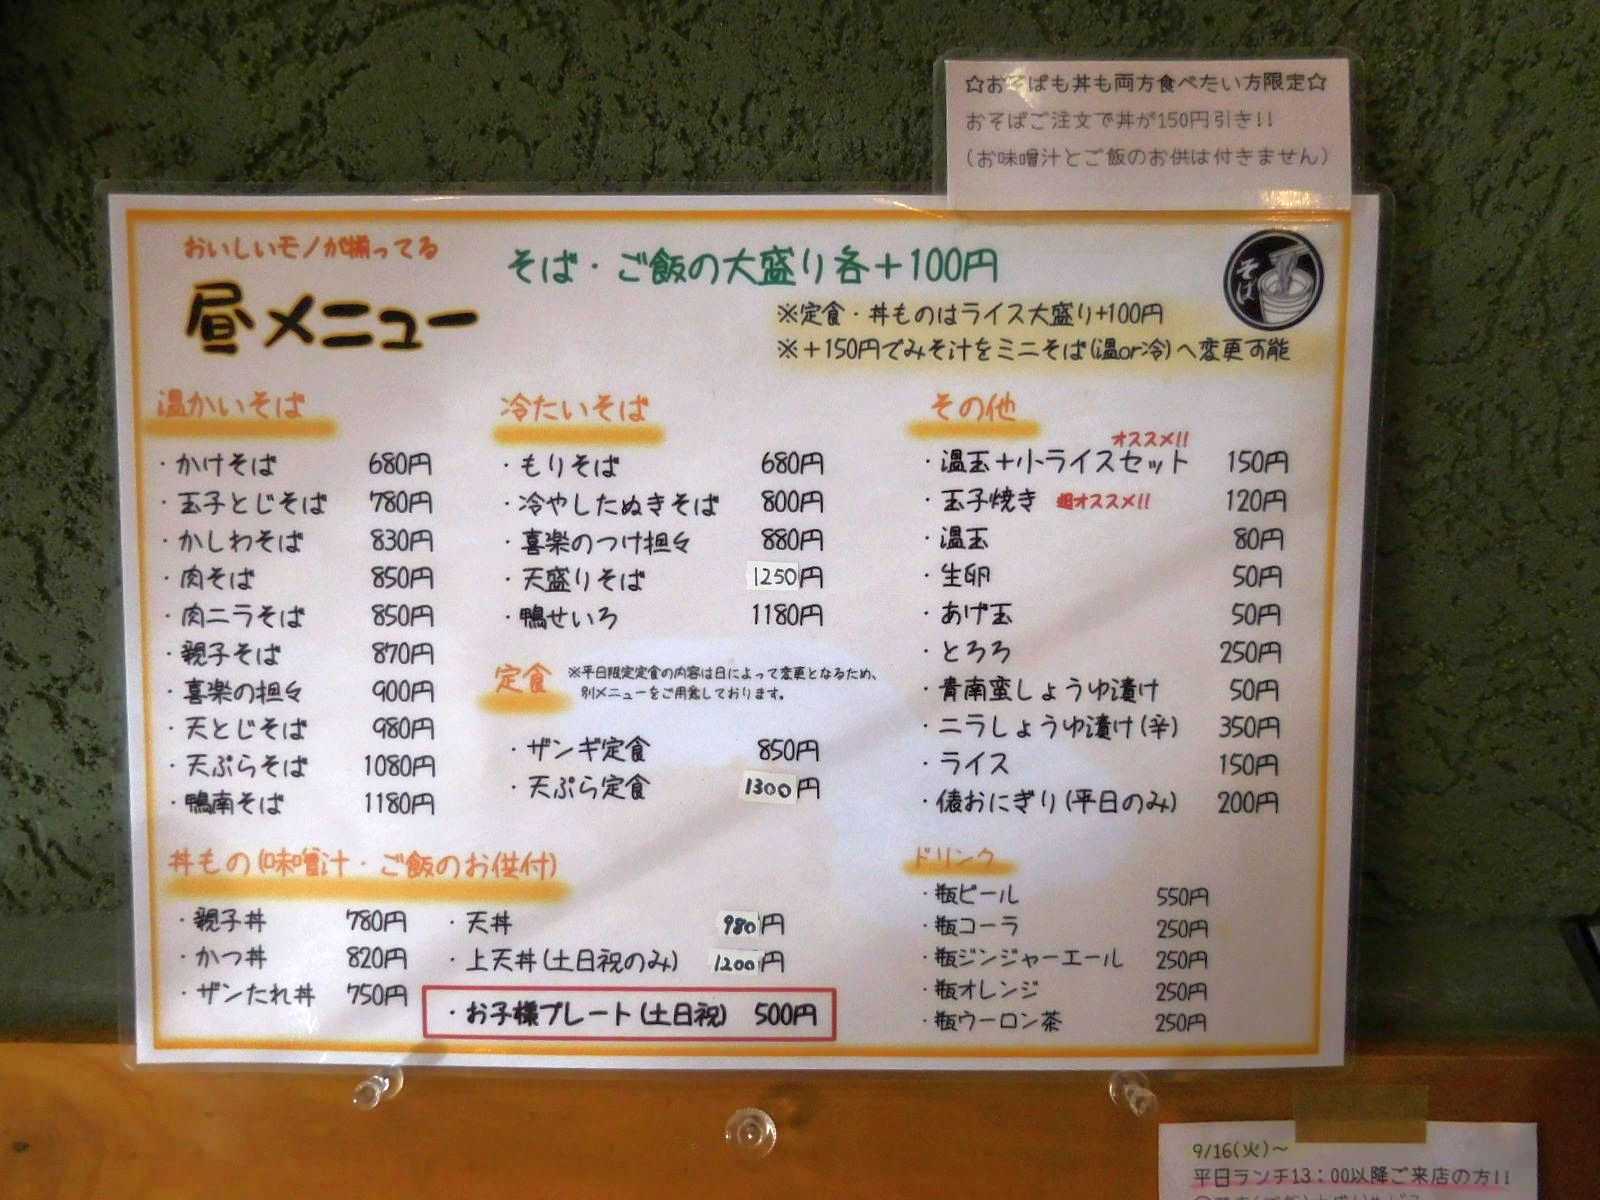 ☆おそばも丼も両方食べたい方限定☆
おそばご注文で丼が150円引き!!
(お味噌汁とご飯のお供は付きません)
おいしいモノが揃ってる
昼メニュー
そば・ご飯の大盛り各+100円
※定食・丼ものはライス大盛り+100円
※+150円でみそ汁をミニそば(温or冷)へ変更可能
そば
温かいそば
・かけそば 680円
・玉子とじそば 780円
・かしわそば 830円
・肉そば 850円
・肉ニラそば 850円
・親子そば 870円
・喜楽の担々 900円
・天とじそば 980円
・天ぷらそば 1080円
・鴨南そば 1180円
冷たいそば
・もりそば 680円
・冷やしたぬきそば 800円
・喜楽のつけ担々 880円
・天盛りそば 1250円
・鴨せいろ 1180円
定食
※平日限定定食の内容は日によって変更となるため、
別メニューをご用意しております。
・ザンギ定食 850円
・天ぷら定食 1300円
その他
オススメ!!
・温玉+小ライスセット 150円
・玉子焼き 超オススメ!! 120円
・温玉 80円
・生卵 50円
・あげ玉 50円
・とろろ 250円
・青南蛮しょうゆ漬け 50円
・ニラしょうゆ漬け(辛) 350円
・ライス 150円
・俵おにぎり(平日のみ) 200円
丼もの(味噌汁・ご飯のお供付)
・親子丼 780円
・かつ丼 820円
・ザンたれ丼 750円
・天丼 980円
・上天丼(土日祝のみ) 1200円
・お子様プレート(土日祝) 500円
ドリンク
・瓶ビール 550円
・瓶コーラ 250円
・瓶ジンジャーエール 250円
・瓶オレンジ 250円
・瓶ウーロン茶 250円
9/16(火)～
平日ランチ13：00以降ご来店の方!!